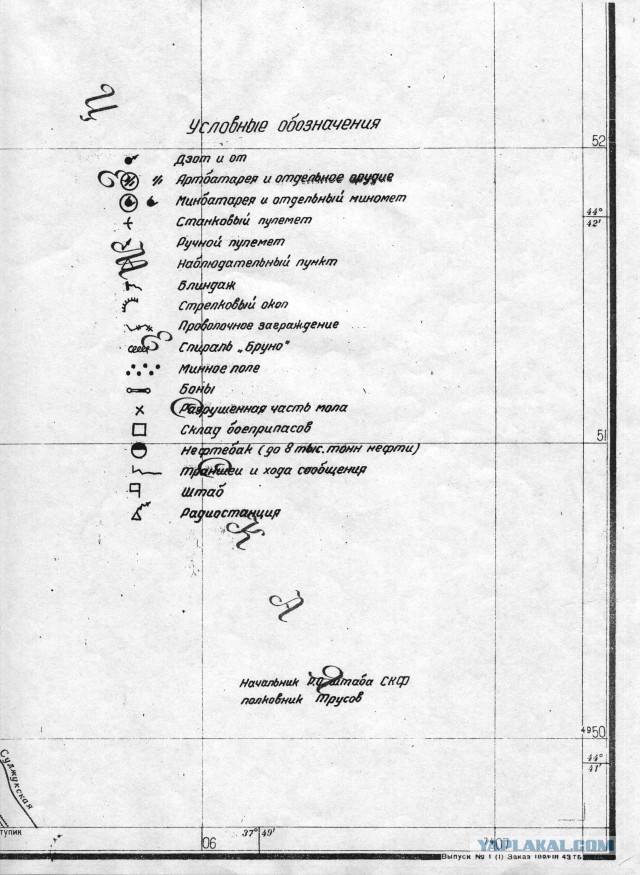 Условные обозначения
Дзот и от
Артбатарея и отдельное орудие
Минбатарея и отдельный миномет
Станковый пулемет
Ручной пулемет
Наблюдательный пункт
Блиндаж
Стрелковый окоп
Проволочное заграждение
Спираль „Бруно"
Минное поле
Боны
Разрушенная часть мола
Склад боеприпасов
Нефтебак (до 8 тыс. тонн нефти)
Траншеи и хода сообщения
Штаб
Радиостанция
Ц
Э
М
Е
С
С
К
А
Я
Начальник Р.О. штаба СКФ
полковник Трусов
52
44°
42'
51
4950
44°
41'
Суджукская
тупик
06
37° 49'
7407
YAPLAKAL.COM
Выпуск № 1 (1) Заказ
43 г.